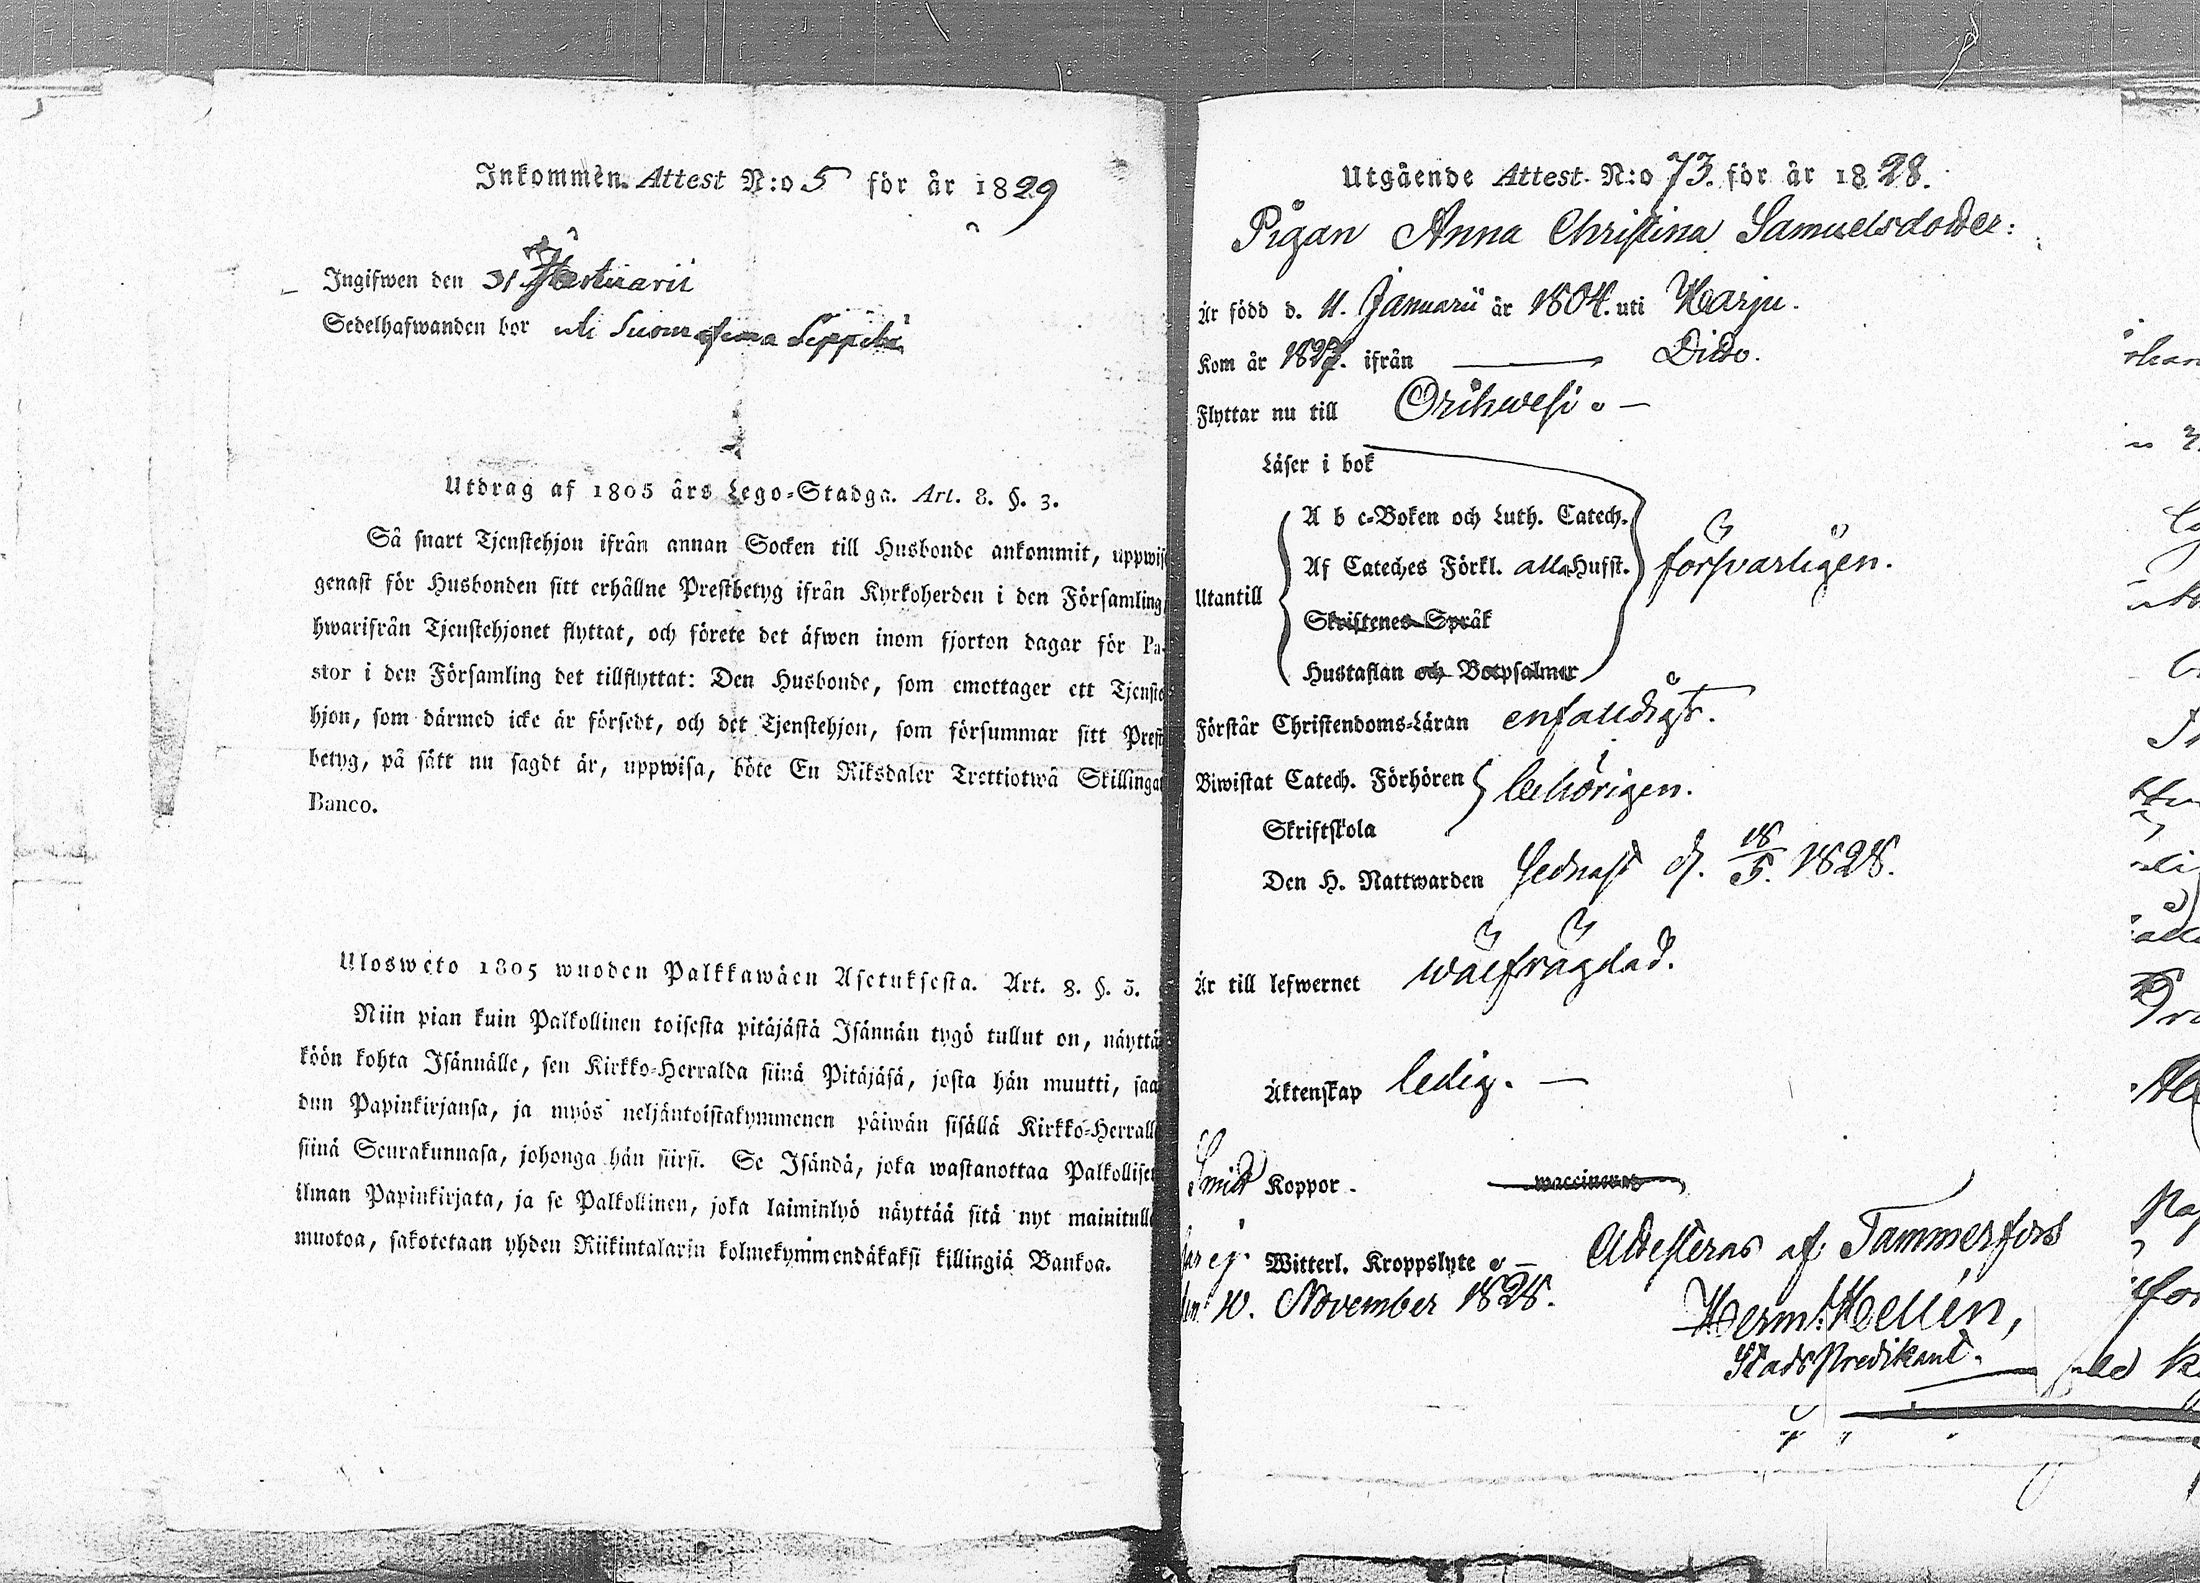 Inkommen Attest N:o 5 för år 1829
Ingifwen den 31
Sedelhafwanden bor uti
Utdrag af 1805 års Lego-Stadga. Art. 8. §. 3.
Så snart Tjenstehjon ifrån annan Socken till Husbonde ankommit, uppwis
genast för Husbonden sitt erhållne Prestbetyg ifrån Kyrkoherden i den Församling
hwarifrån Tjenstehjonet flyttat, och förete det äfwen inom fjorton dagar för Pa-
stor i den Församling det tillflyttat: Den Husbonde, som emottager ett Tjenste
hjon, som därmed icke är försedt, och det Tjenstehjon, som försummar sitt Prest
betyg, på sätt nu sagdt är, uppwisa, böte En Riksdaler Trettiotwå Skillingar
Banco.
Ulosweto 1805 wuoden Palkkawäen Asetuksesta. Art. 8. §. 3.
Niin pian kuin Palkollinen toisesta pitäjästä Isännän tygö tullut on, näyttä
köön kohta Isännälle, sen Kirkko-Herralda siinä Pitäjäsä, josta hän muutti, saa
dun Papinkirjansa, ja myös neljäntoistakymmenen päiwän sisällä Kirkko-Herrall
siinä Seurakunnasa, johonga hän siirsi. Se Isändä, joka wastanottaa Palkollisen
ilman Papinkirjata, ja se Palkollinen, joka laiminlyö näyttää sitä nyt mainitulla
muotoa, sakotetaan yhden Riikintalarin kolmekymmendäkaksi killingiä Bankoa.
Utgående Attest. N:o 73. för år 1828.
Pigan Anna Christina Samuelsdotter:
Är född d. 11. Januarii år 1804. uti Harju.
Kom år 1827. ifrån — Ditto.
Flyttar nu till Orihwesi. —
Läser i bok
A b c-Boken och Luth. Catech.
Af Cateches Förkl. alla Hufst. försvarligen.
Utantill
Skriftenes Språk
Hustaflan och Botpsalmer
Förstår Christendoms-Läran enfaldigt.
Biwistat Catech. Förhören behörigen.
Skriftskola
Den H. Nattwarden sednast d. 18/5. 1828.
Är till lefwernet wälfrägdad.
Äktenskap ledig. —
Koppor. waccinerad
ej. Witterl. Kroppslyte. — Attesteras af Tammerfors
den 10. November 1828.
Herm. Hellén,
StadsPredikant.